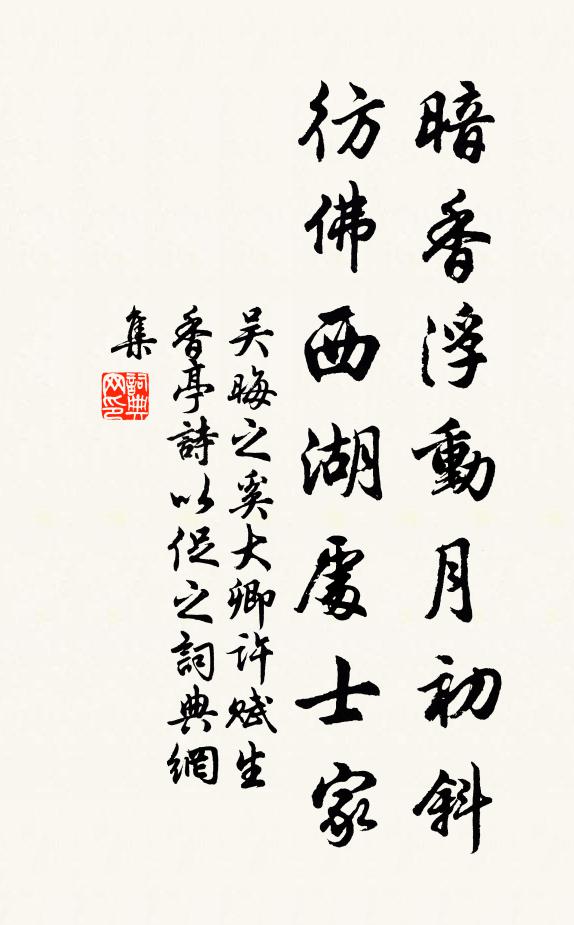 暗香浮動月初斜
彷佛西湖處士家
吴晦之奚大卿许赋生
香亭詩以促之詞典網
集
詞典网印